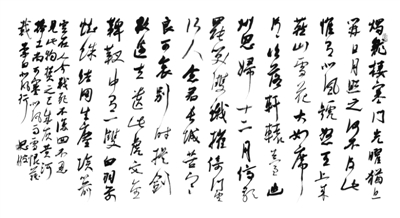 燭龍棲寒門光曜猶旦
開日月照之何不及此
惟有北風號怒天上来
燕山雪花大如席
片片吹落軒轅臺幽
州思婦十二月停歌
罷笑雙蛾摧倚門望
行人念君長城苦寒
良可哀别时提劍
救邊去遺此虎文金
鞞靫中有一雙白羽箭
蜘蛛結网生塵埃箭
空在人今戰死不復回不忍
見此物焚之已成灰黃河
捧土尚可塞北風雨雪恨難
裁李白北風行